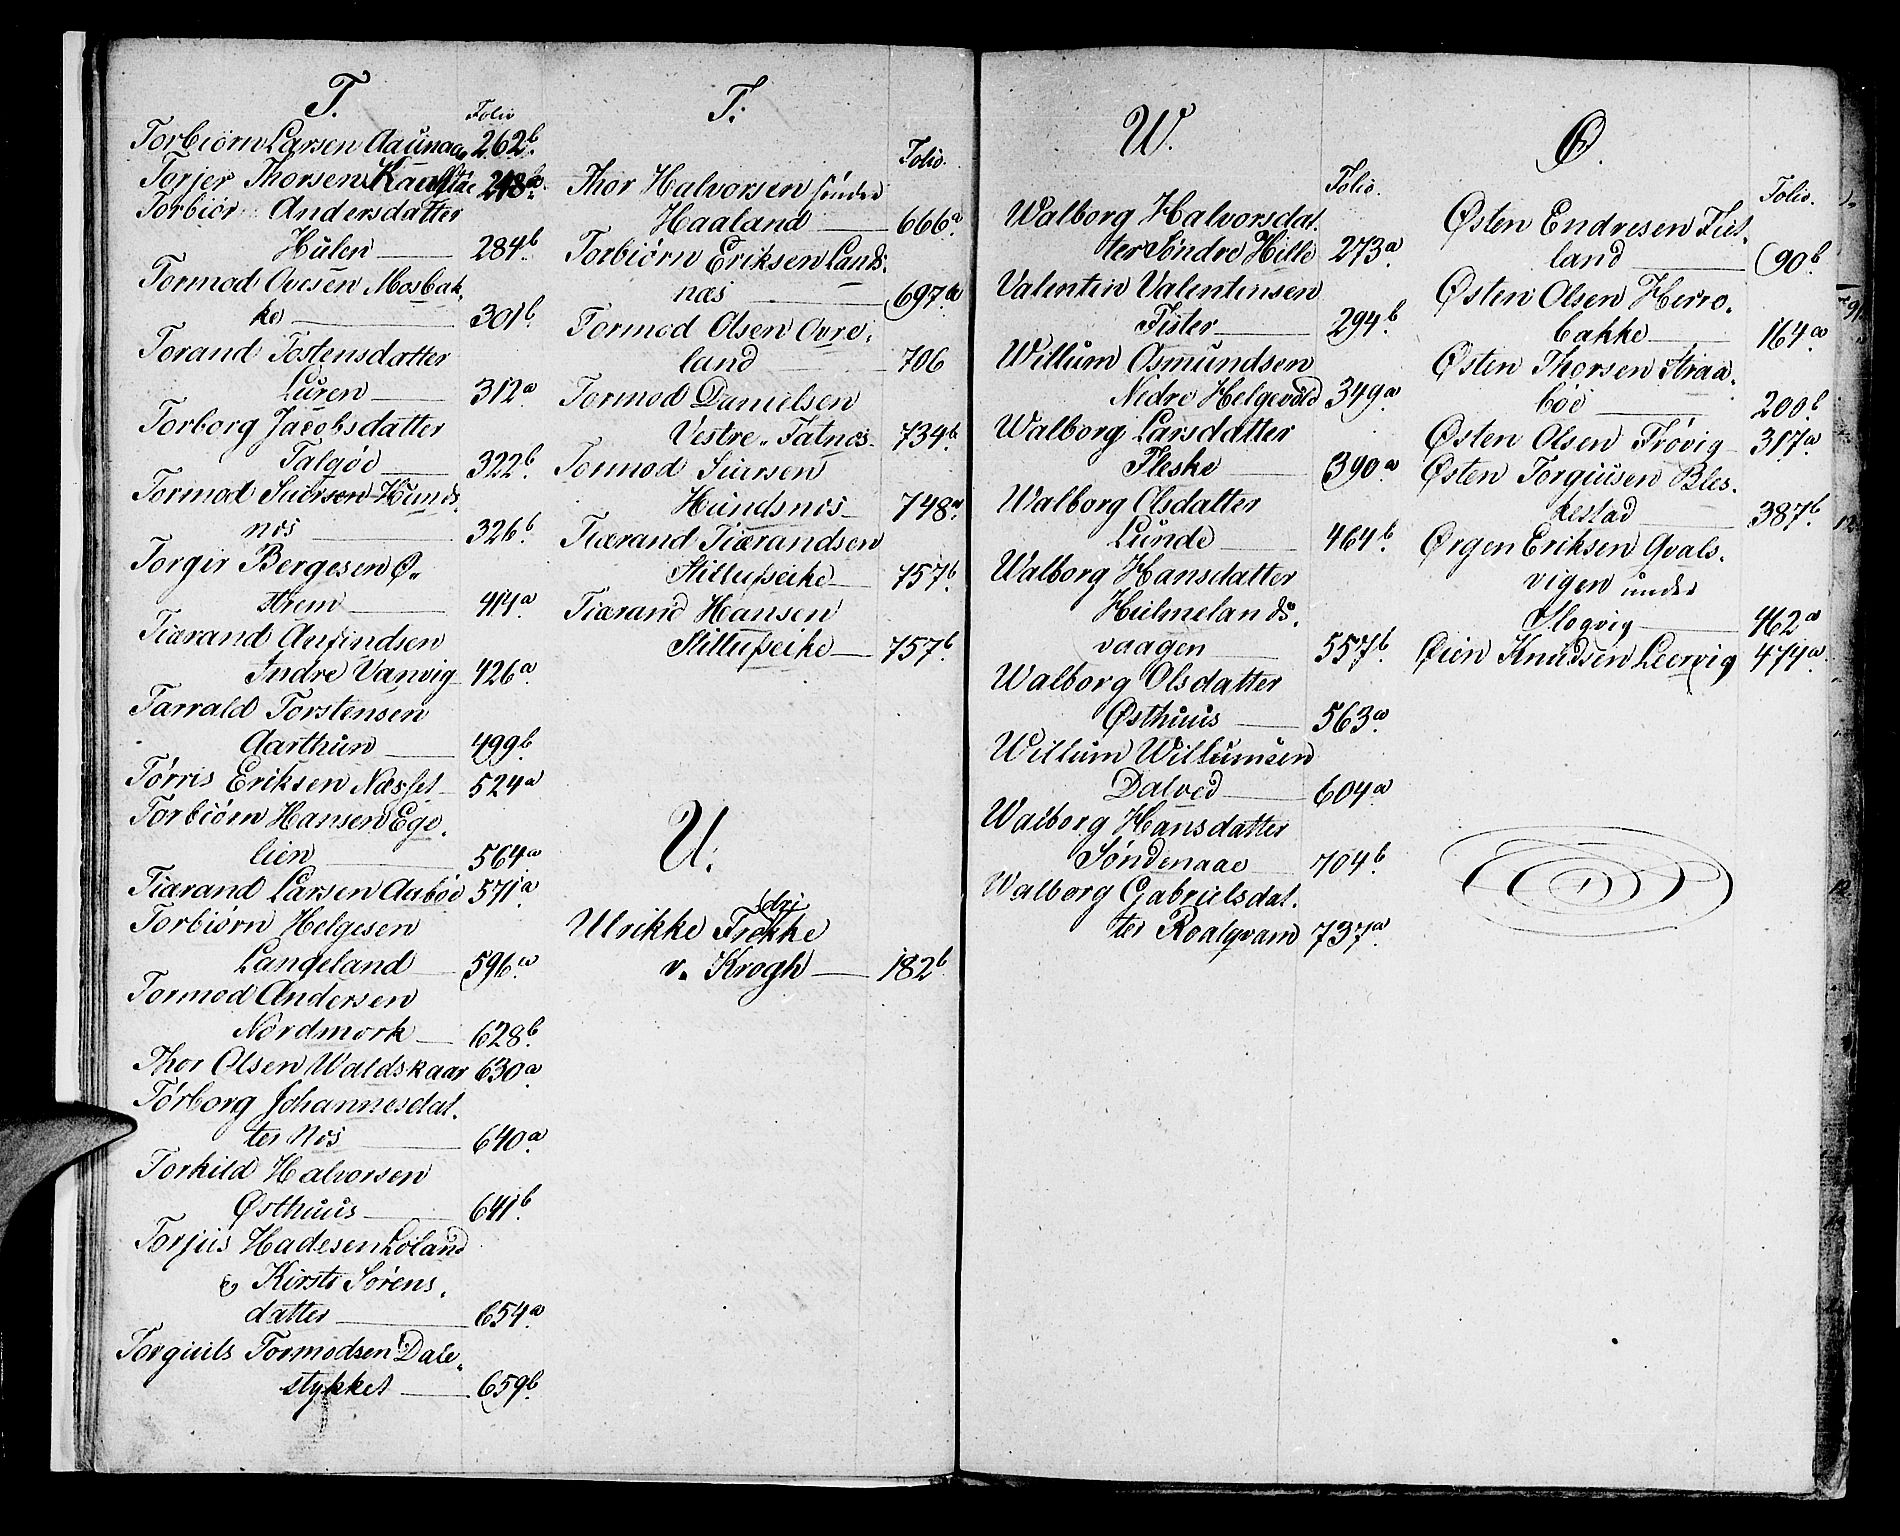 T.
Folio
Torbiørn Larsen Aaunaa 262b.
Torjer Thorsen
Torbiør Andersdatter
Hülen 284b.
Tormod Ovesen Mosbak-
ke 301b.
Torand Tostensdatter
Lüren 312a.
Torborg Jacobsdatter
Talgöe 322b.
Tormod Siursen Hunds
nös 326b.
Torgir Bergesen Ø-
strem 414a.
Tiærand Anfindsen
Indre Vanvig 426a.
Tarrald Torstensen
Aarthun 499b.
Tørris Eriksen Næsset 524a.
Torbiørn Hansen Ege-
lien 564a.
Tiærand Larsen Aaböe 571a.
Torbiørn Helgesen
Langeland 596a.
Tormod Andersen
Nordmork 628b.
Thor Olsen Waldskaar 630a.
Torborg Johannesdat-
ter Nös 640a.
Torkild Halvorsen
Østhuus 641b.
Torjus Hadesen Loland
& Kirsti Sørens-
datter 654a.
Torgiuls Tormodsen Dale-
stykket 659b.
T.
Folio.
Thor Halvorsen söndre
Haaland 666a.
Torbiørn Eriksen Lands-
næs 697a.
Tormod Olsen Ovre-
land 706
Tormod Danielsen
Vestre Tatnes 734b.
Tormod Siursen
Hundsnös 748a.
Tiærand Tiærandsen
Stillufseike 757b.
Tiærand Hansen
Stillufseike 757b.
U.
Ulrikke Frøkke
v. Krogh 182b.
W.
Folio.
Walborg Halvorsdat-
ter Søndre Hille 273a.
Valentin Valentinsen
Fister 294b.
Willum Osmundsen
Nedre Helgevold 349a.
Walborg Larsdatter
Fleske 390a.
Walborg Olsdatter
Lunde 464b.
Walborg Hansdatter
Hülmelands-
vaagen 557b.
Walborg Olsdatter
Østhuus 563a.
Willum Willumsen
Dalved 604a.
Walborg Hansdatter
Søndenaae 704b.
Walborg Gabrielsdat-
ter Roalqvam 737a.
Ø.
Folio.
Østen Endresen Fiis-
land 90b.
Østen Olsen Herre-
bakke 164a.
Østen Thorsen Straa-
böe 200b.
Østen Olsen Frövig 317a.
Østen Torgiusen Bles-
kestad 387b.
Ørgen Eriksen Qvals-
vigen under
Slogvig 462a.
Øien Knudsen Leervig 474a.